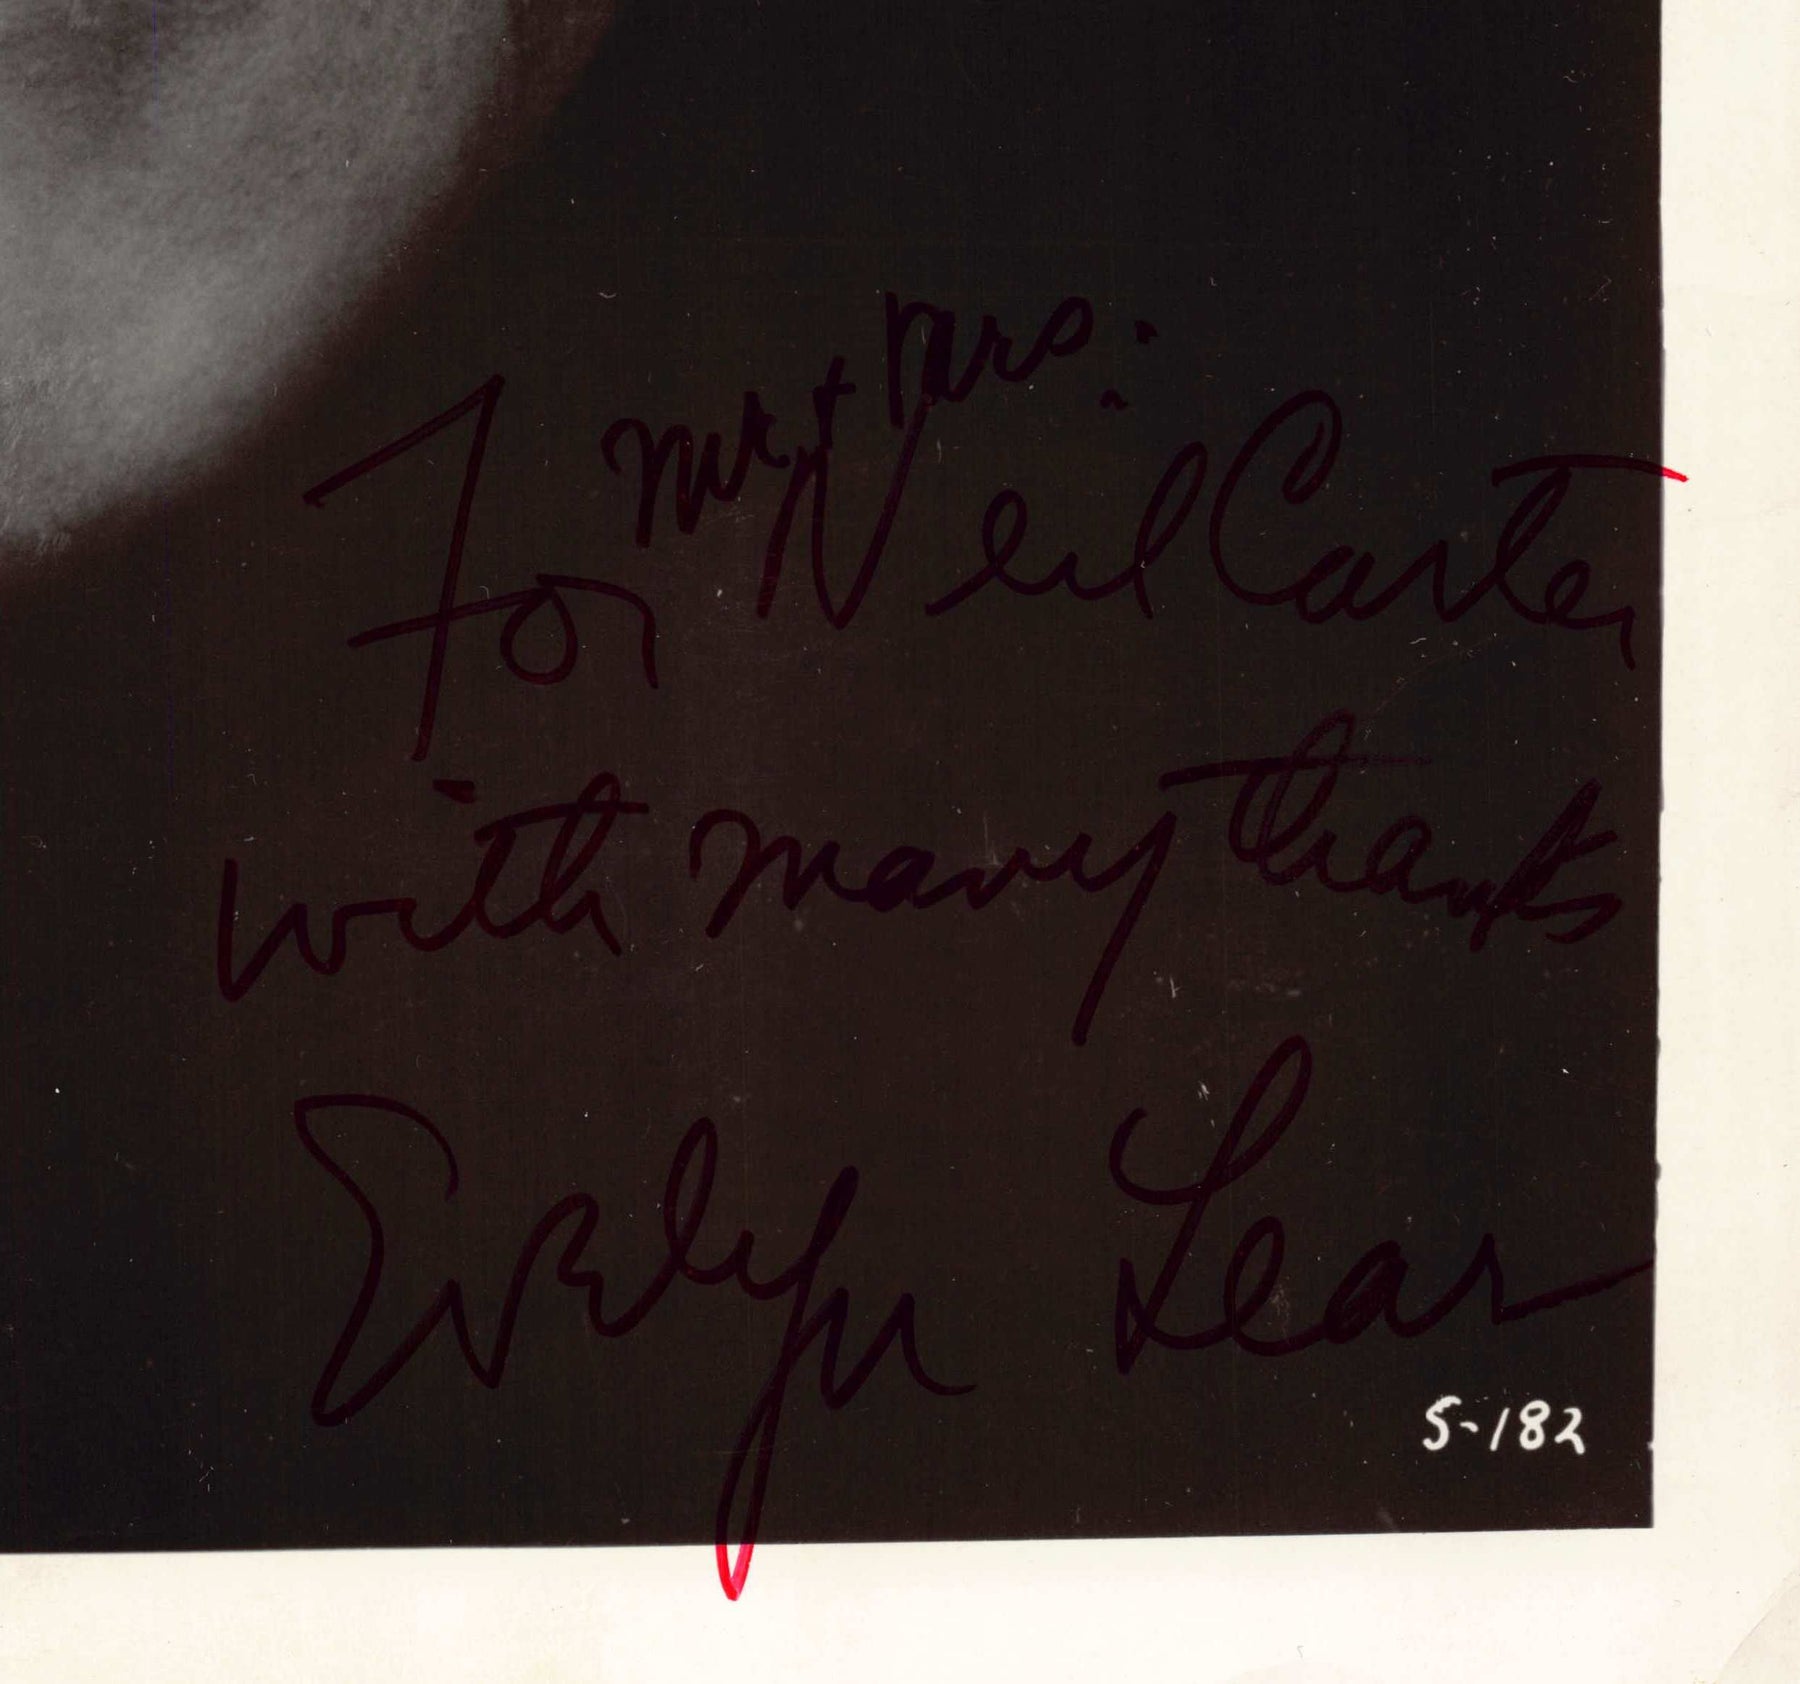 For Mr + Mrs. Neil Carter
with many thanks
Evelyn Lear
S-182